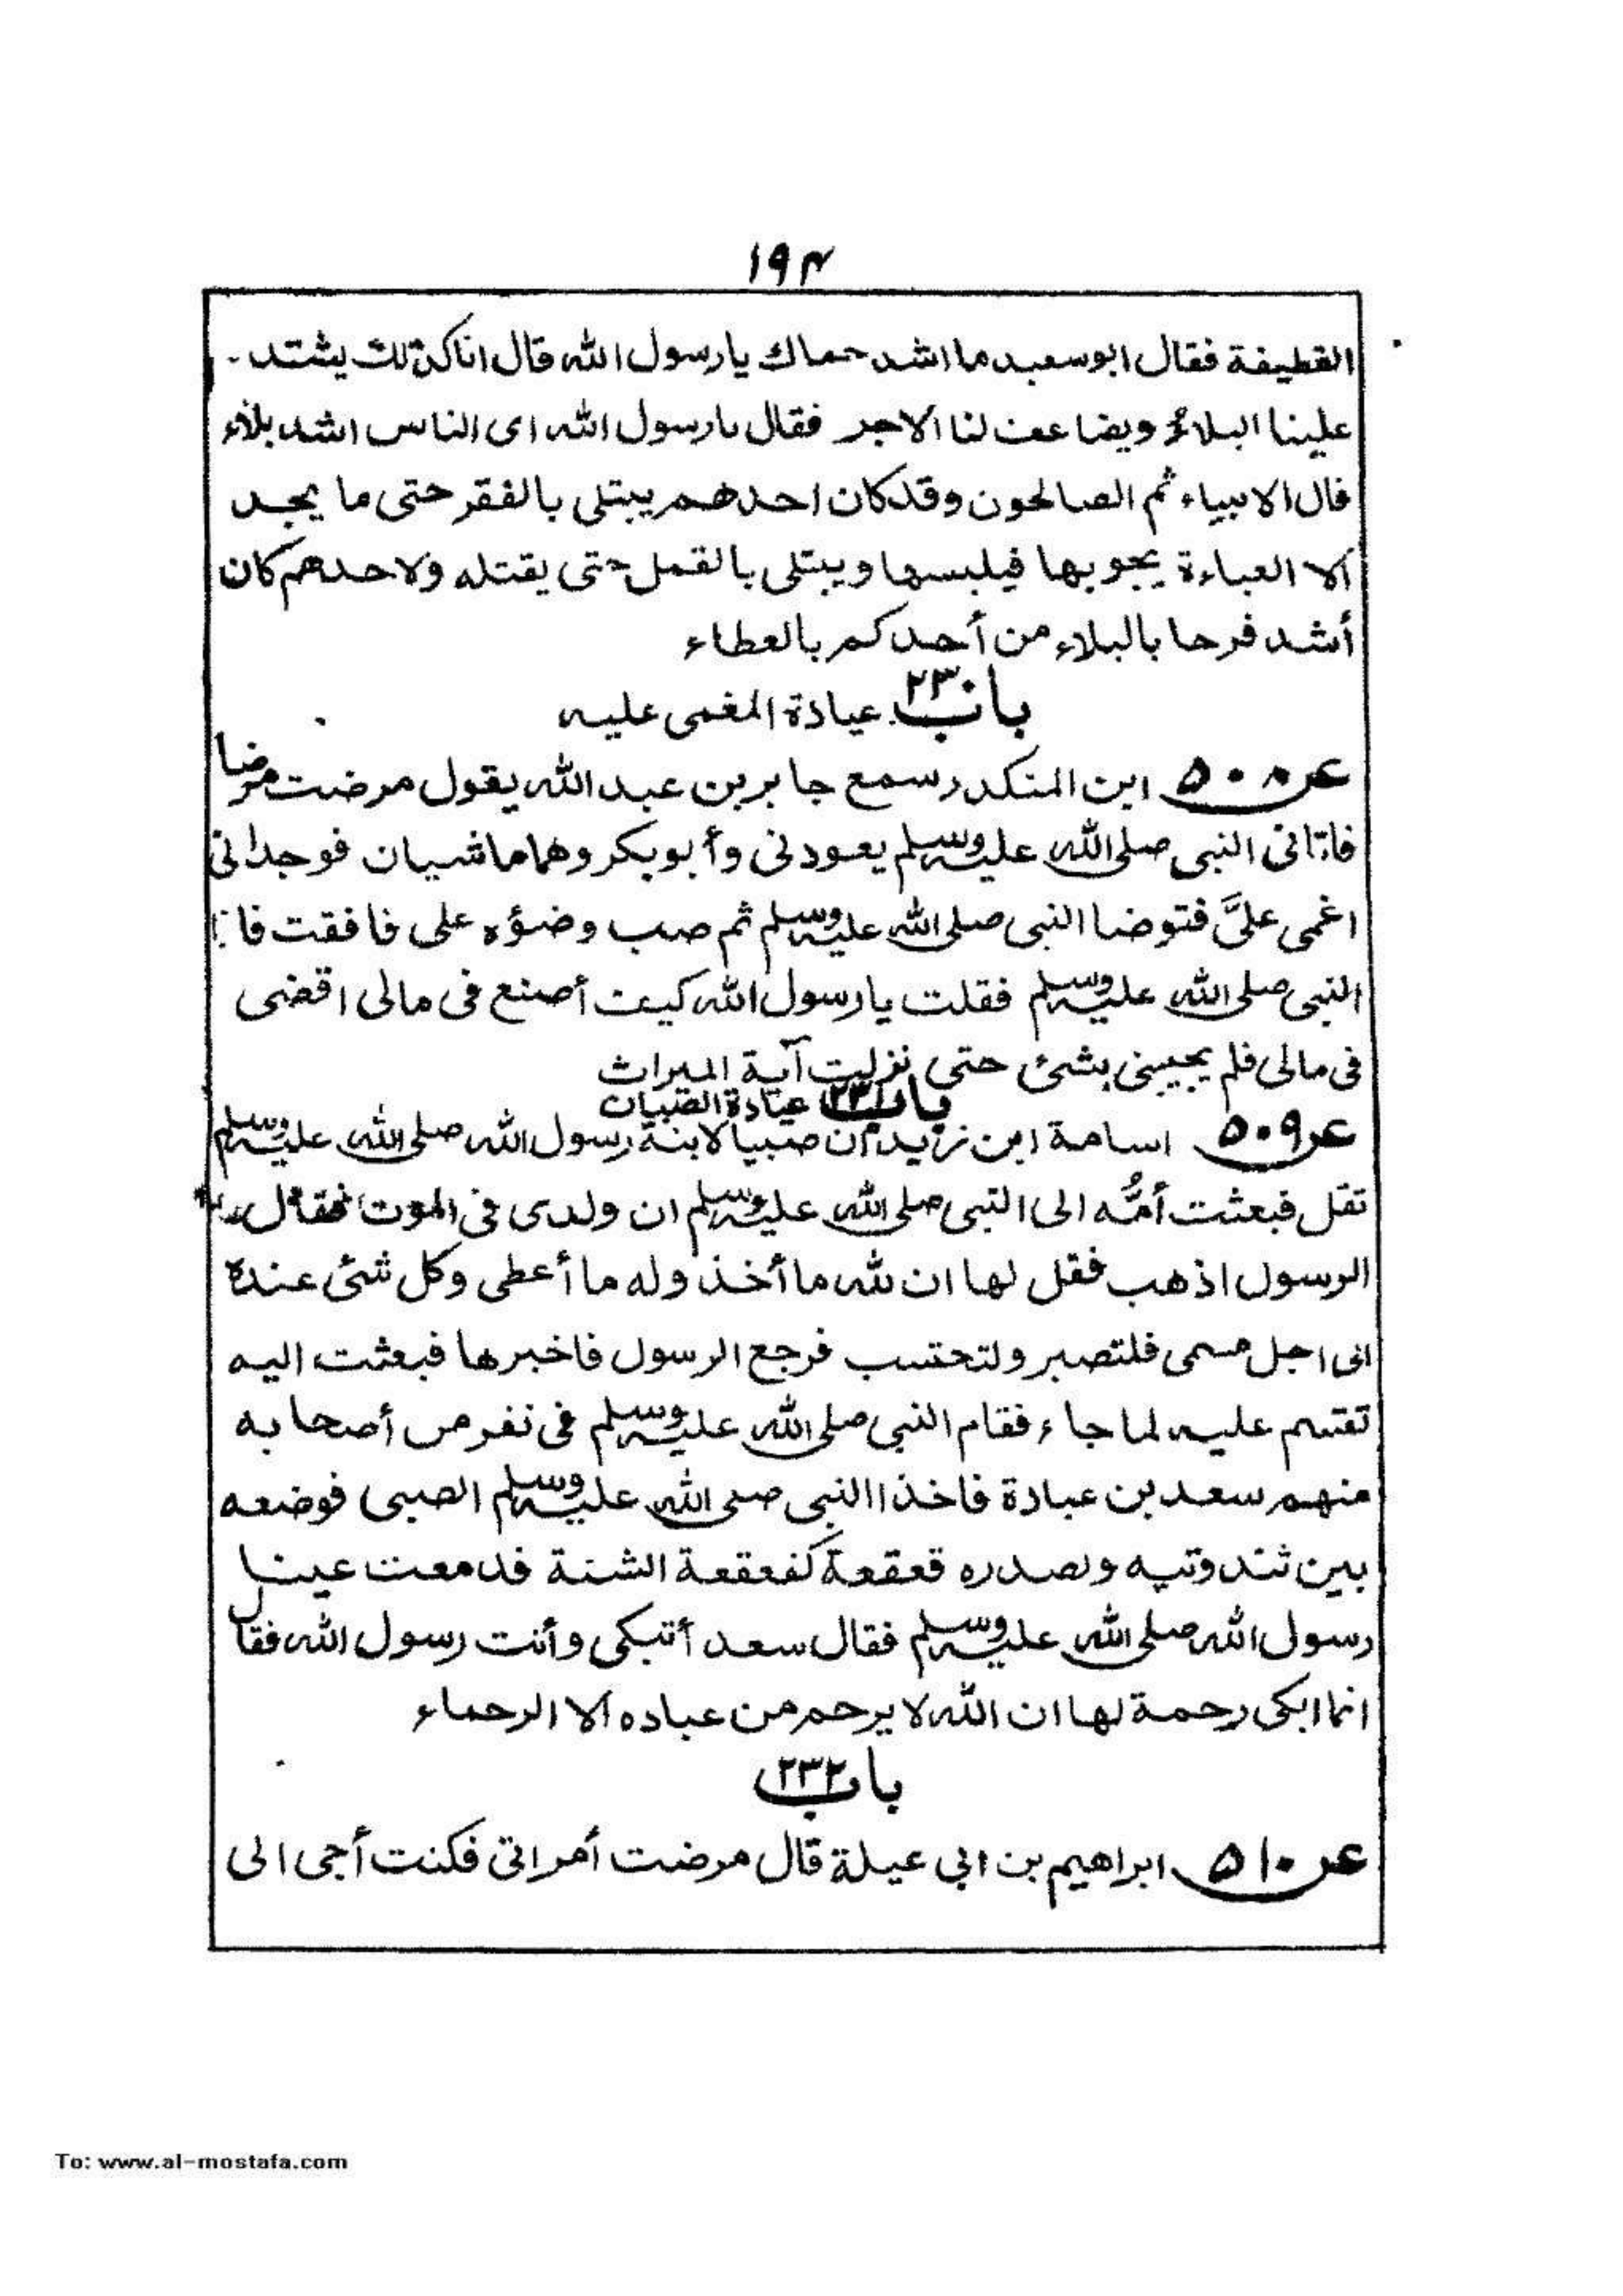 ١٩٣
القطيفة فقال ابو سعيد ما اشد حماك يا رسول الله قال انا كذلك يشتد
علينا البلاء ويضاعف لنا الاجر فقال يا رسول الله اى الناس اشد بلاء
قال الانبياء ثم الصالحون وقد كان احدهم يبتلى بالفقر حتى ما يجد
الا العباءة يجوبها فيلبسها ويبتلى بالقمل حتى يقتله ولاحدهم كان
أشد فرحا بالبلاء من أحدكم بالعطاء
باب ٢٣٠ عيادة المغمى عليه
عن ٥٠٨ ابن المنكدر سمع جابر بن عبد الله يقول مرضت مرضا
فاتانى النبى صلى الله عليه وسلم يعودنى وأبو بكر وهما ماشيان فوجدانى
اغمى علىَّ فتوضا النبى صلى الله عليه وسلم ثم صب وضؤه على فافقت فاذا
النبى صلى الله عليه وسلم فقلت يا رسول الله كيف أصنع فى مالى اقضى
فى مالى فلم يجيبنى بشئ حتى نزلت آية الميراث
باب ٢٣١ عيادة الصبيان
عن ٥٠٩ اسامة ابن زيد أن صبيا لابنة رسول الله صلى الله عليه وسلم
ثقل فبعثت أمُّه الى النبى صلى الله عليه وسلم ان ولدى فى الموت فقال
الرسول اذهب فقل لها ان لله ما أخذ وله ما أعطى وكل شئ عنده
الى اجل مسمى فلتصبر ولتحتسب فرجع الرسول فاخبرها فبعثت اليه
تقسم عليه لما جاء فقام النبى صلى الله عليه وسلم فى نفر من أصحابه
منهم سعد بن عبادة فاخذ االنبى صلى الله عليه وسلم الصبى فوضعه
بين ثندوتيه ولصدره قعقعة كقعقعة الشنة فدمعت عينا
رسول الله صلى الله عليه وسلم فقال سعد أتبكى وأنت رسول الله فقال
انما ابكى رحمة لها ان الله لا يرحم من عباده الا الرحماء
باب ٢٣٢
عن ٥١٠ ابراهيم بن ابى عبلة قال مرضت أمراتى فكنت أجى الى
To: www.al-mostafa.com